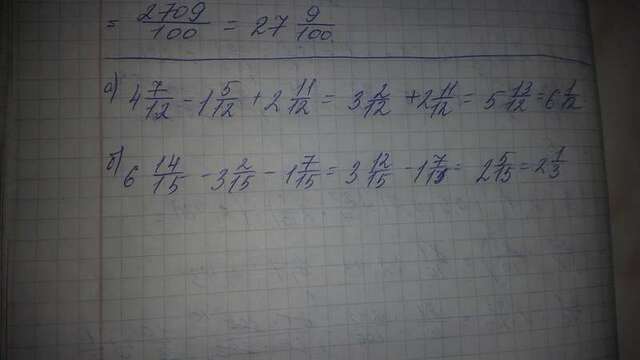 = 2709/100 = 27 9/100
а) 4 7/12 - 1 5/12 + 2 11/12 = 3 2/12 + 2 11/12 = 5 13/12 = 6 1/12
б) 6 14/15 - 3 2/15 - 1 7/15 = 3 12/15 - 1 7/15 = 2 5/15 = 2 1/3